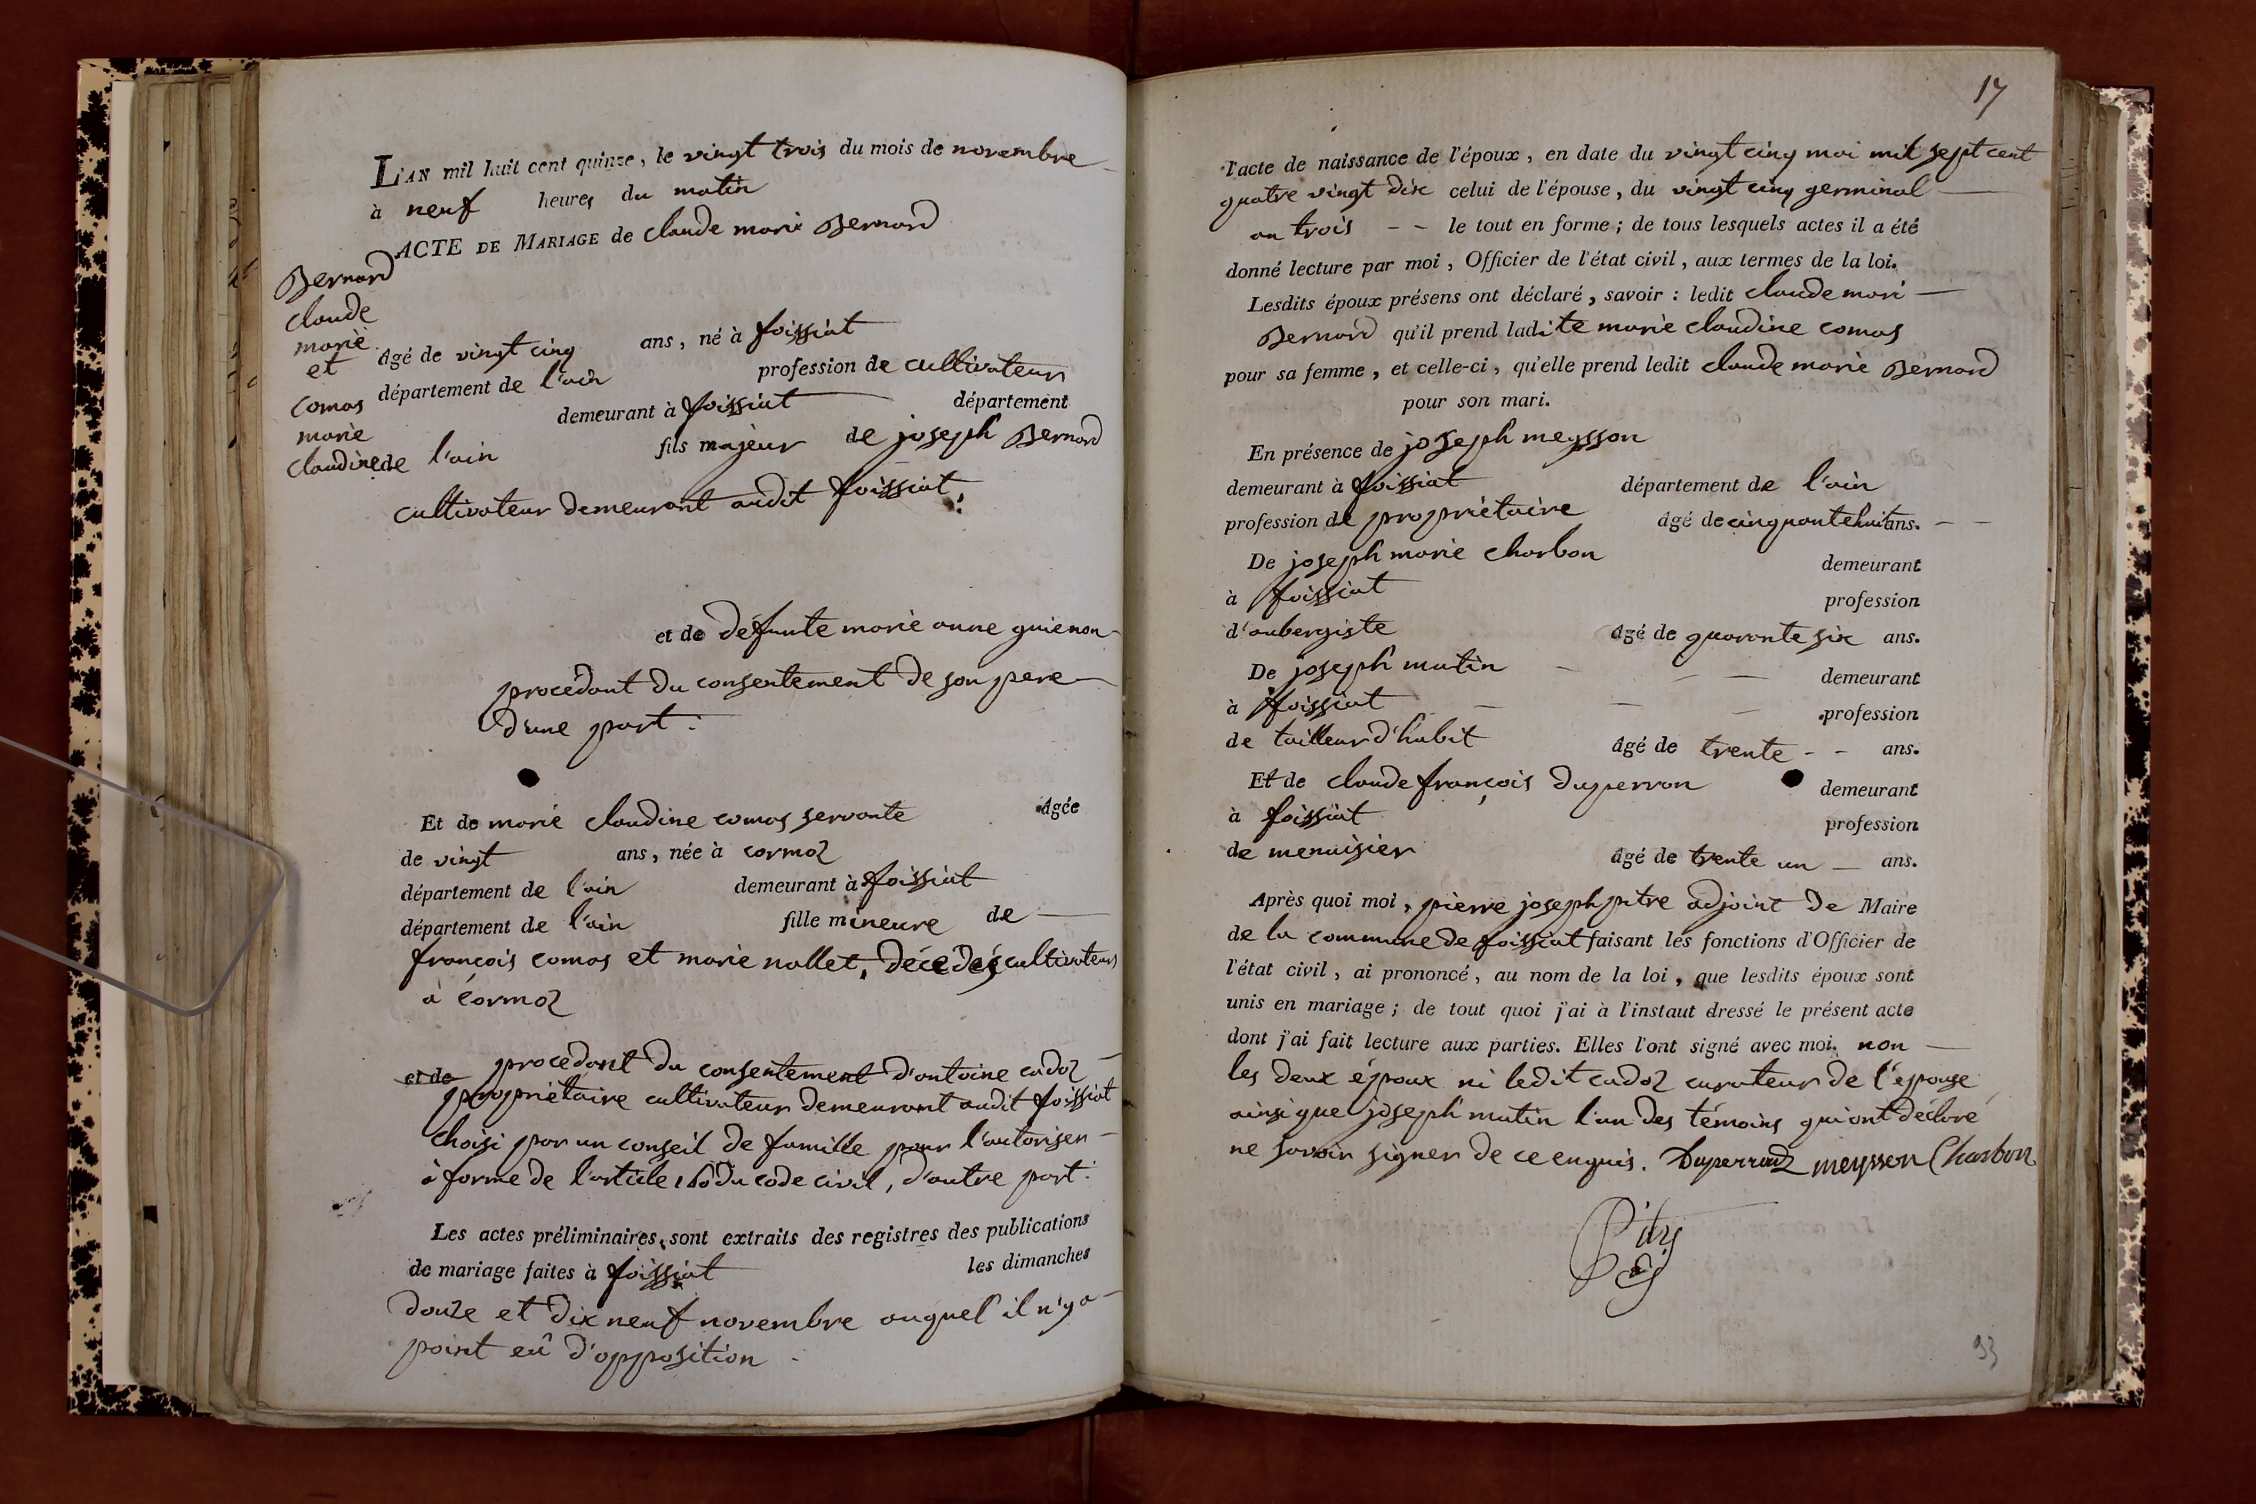 L'AN mil huit cent quinze, le vingt trois du mois de novembre
à neuf heures du matin
ACTE DE MARIAGE de claude marie Bernard
Bernard
claude
marie
et
comas
marie
claudine
Agé de vingt cinq ans, né à foissiat
département de l'ain profession de cultivateur
demeurant à foissiat département
de l'ain fils majeur de joseph Bernard
cultivateur demeurant audit foissiat
et de défunte marie anne guienon
procédant du consentement de son pere
d'une part :
Et de marie claudine comas servante Agée
de vingt ans, née à cormoz
département de l'ain demeurant à foissiat
département de l'ain fille mineure de
françois comas et marie nallet, décédés cultivateurs
à cormoz
et de procédant du consentement d'antoine cadoz
propriétaire cultivateur demeurant audit foissiat
choisi par un conseil de famille pour l'autoriser
à forme de l'article 160 du code civil, d'autre part :
Les actes préliminaires sont extraits des registres des publications
de mariage faites à foissiat les dimanches
douze et dix neuf novembre auquel il n'y a
point eû d'opposition
17
l'acte de naissance de l'époux, en date du vingt cinq mai mil sept cent
quatre vingt dix celui de l'épouse, du vingt cinq germinal
an trois - - le tout en forme; de tous lesquels actes il a été
donné lecture par moi, Officier de l'état civil, aux termes de la loi.
Lesdits époux présens ont déclaré, savoir : ledit claude mari
Bernard qu'il prend ladite marie claudine comas
pour sa femme, et celle-ci, qu'elle prend ledit claude marie Bernard
pour son mari.
En présence de joseph meysson
demeurant à foissiat département de l'ain
profession de propriétaire âgé de cinquante huit ans. - -
De joseph marie charbon demeurant
à foissiat profession
d'aubergiste âgé de quarante six ans.
De joseph mutin demeurant
à foissiat profession
de tailleur d'habit âgé de trente - - ans.
Et de claude françois duperron demeurant
à foissiat profession
de menuisier âgé de trente un ans.
Après quoi moi, pierre joseph pitre adjoint de Maire
de la commune de foissiat faisant les fonctions d'Officier de
l'état civil, ai prononcé, au nom de la loi, que lesdits époux sont
unis en mariage; de tout quoi j'ai à l'instaut dressé le présent acte
dont j'ai fait lecture aux parties. Elles l'ont signé avec moi. non
les deux époux ni ledit cadoz curateur de l'épouse
ainsi que joseph mutin l'un des témoins qui ont déclaré
ne savoir signer de ce enquis. Duperroud meysson Charbon
93